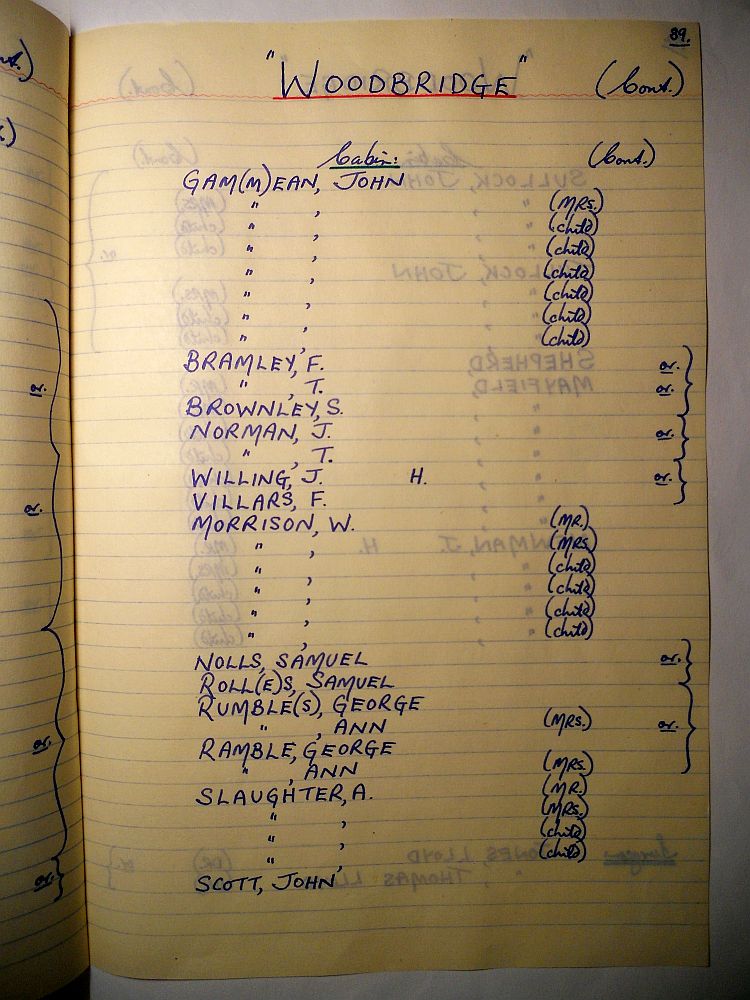 89.
"WOODBRIDGE" (Cont.)
Cabin: (Cont.)
GAM(M)EAN, JOHN
" , (MRS.)
" , (child)
" , (child)
" , (child)
" , (child)
" , (child)
" , (child)
BRAMLEY, F. or.
" , T. or.
BROWNLEY, S.
NORMAN, J. or.
" , T.
WILLING, J. H. or.
VILLARS, F.
MORRISON, W. (MR.)
" , (MRS.)
" , (child)
" , (child)
" , (child)
" , (child)
NOLLS, SAMUEL or.
ROLL(E)S, SAMUEL
RUMBLE(S), GEORGE
" , ANN (MRS.) or.
RAMBLE, GEORGE
" , ANN (MRS.)
SLAUGHTER, A. (MR.)
" , (MRS.)
" , (child)
" , (child)
SCOTT, JOHN
or.
or.
or.
or.